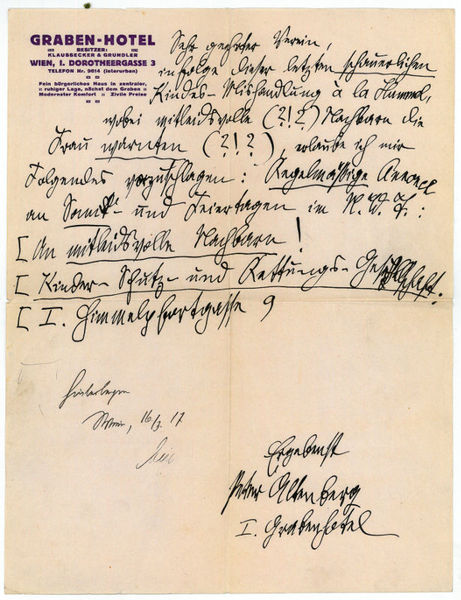 GRABEN-HOTEL
BESITZER:
KLAUSBECKER & GRUNDLER
WIEN, I. DOROTHEERGASSE 3
TELEFON Nr. 9614 (interurban)
Fein bürgerliches Haus in zentraler,
ruhiger Lage, nächst dem Graben
Modernster Komfort Zivile Preise
Sehr geehrter Verein,
infolge dieser letzten schauerlichen
Kindes-Mishandlung à la Hummel,
wobei mitleidsvolle (?!?) Nachbarn die
Frau warnten (?!?), erlaube ich mir
Folgendes vorzuschlagen: Regelmäßige
an Samst- und Feiertagen im :
[ An mitleidsvolle Nachbarn!
[ Kinder-Schutz- und Rettungs-Gesellschaft.
[ I. Himmelpfortgasse 9
Wien, 16/3. 17
Ergebenst
Peter Altenberg
I. Grabenhotel